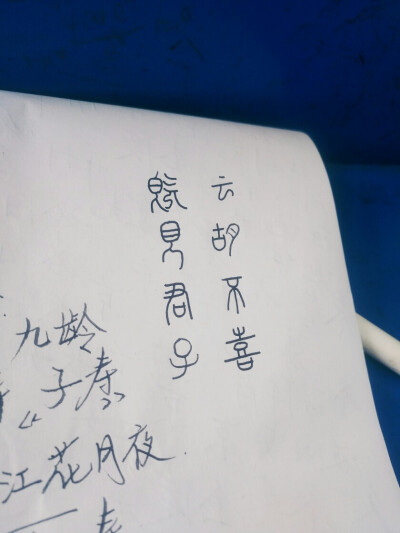 既見君子
云胡不喜
九龄
子寿
江花月夜